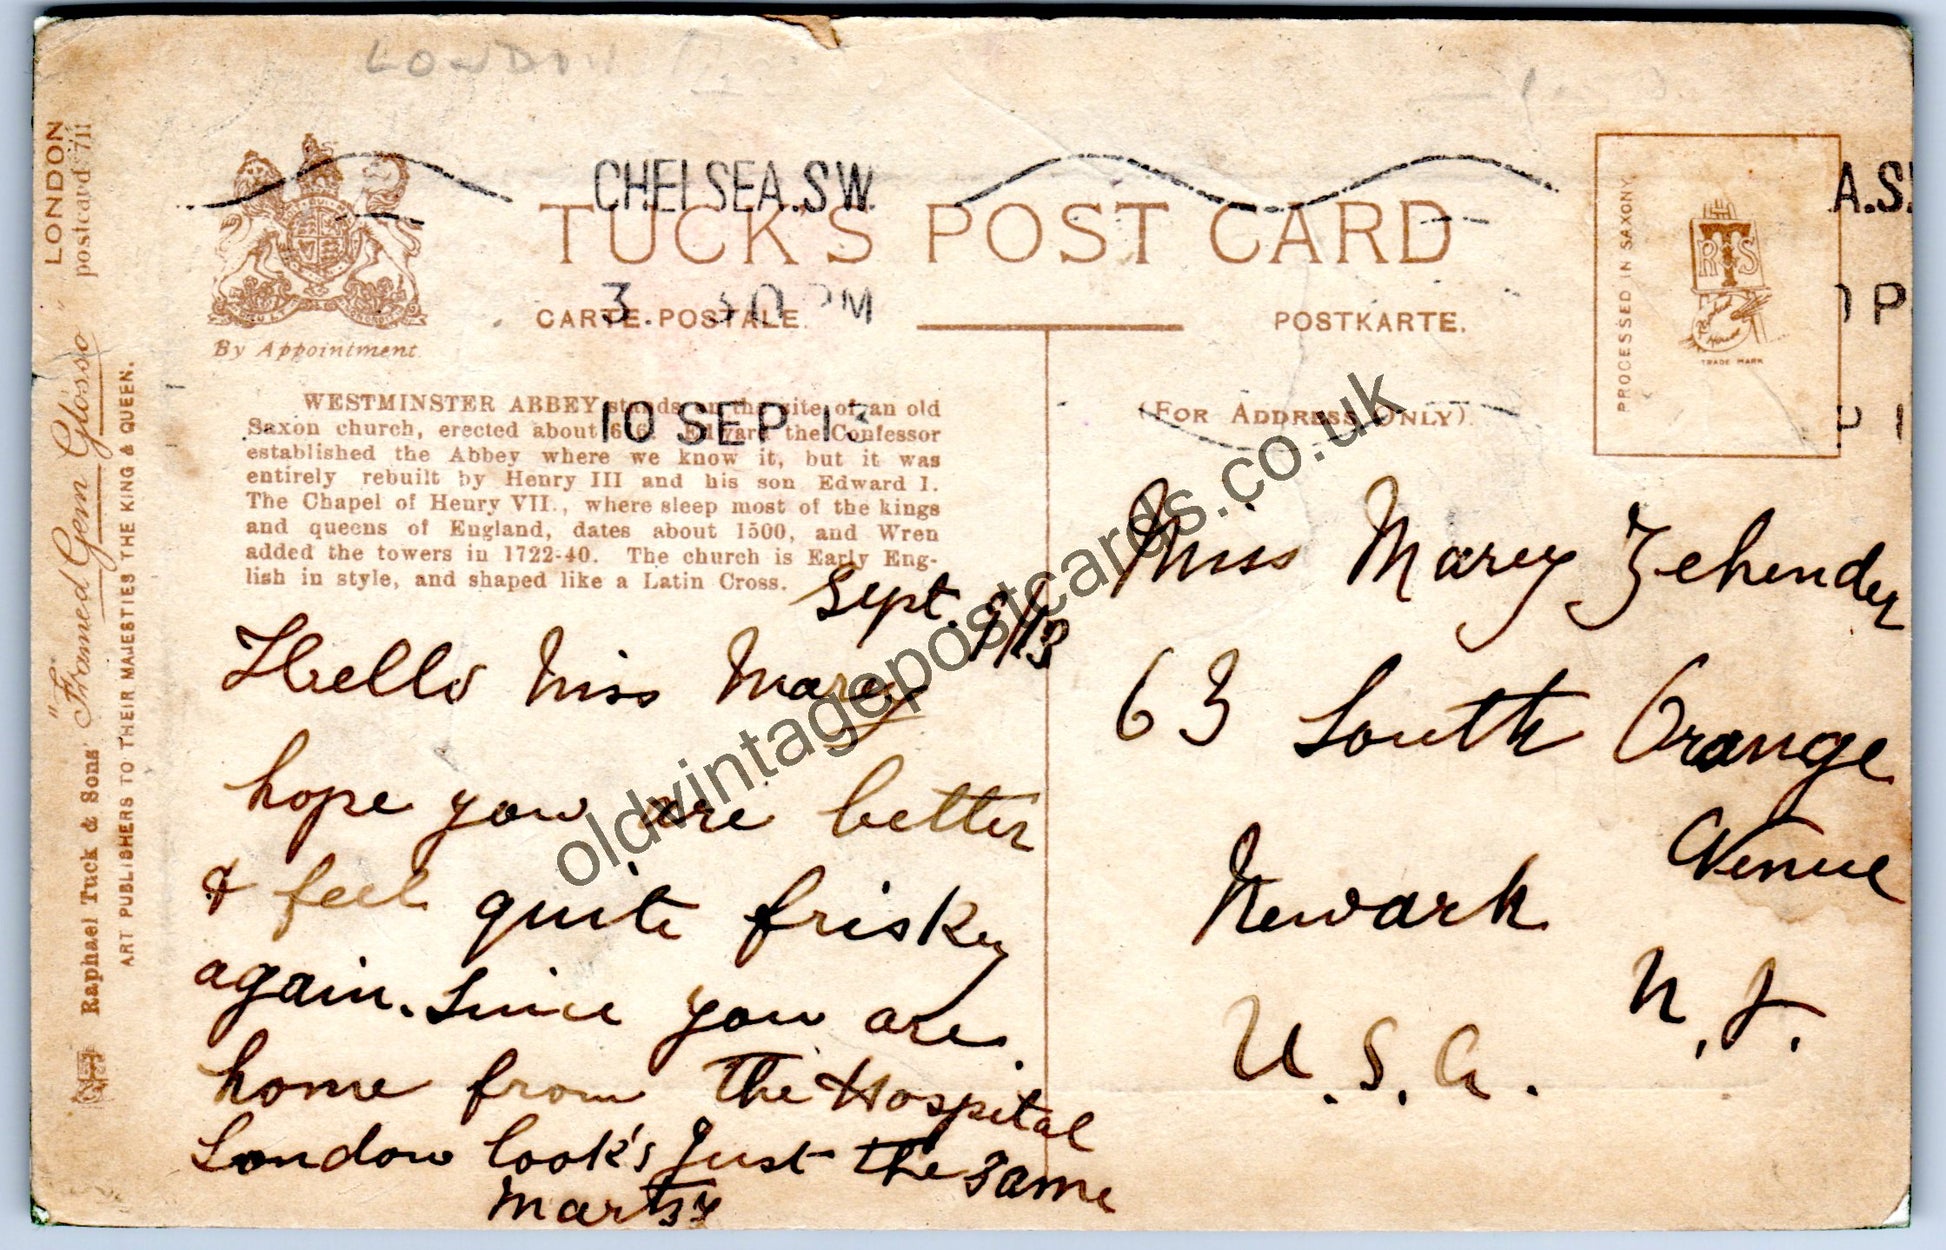 LONDON
LONDON
postcard 711
"Framed Gem Glosso"
Raphael Tuck & Sons'
ART PUBLISHERS TO THEIR MAJESTIES THE KING & QUEEN.
By Appointment.
CHELSEA.S.W.
TUCK'S POST CARD
3 30 PM
CARTE POSTALE.
POSTKARTE.
10 SEP 13
(FOR ADDRESS ONLY)
PROCESSED IN SAXONY.
RTS
TRADE MARK
A.S.
WESTMINSTER ABBEY stands on the site of an old
Saxon church, erected about 616. Edward the Confessor
established the Abbey where we know it, but it was
entirely rebuilt by Henry III and his son Edward I.
The Chapel of Henry VII., where sleep most of the kings
and queens of England, dates about 1500, and Wren
added the towers in 1722-40. The church is Early Eng-
lish in style, and shaped like a Latin Cross.
Sept. 9/13
Hello Miss Marey
hope you are better
& feel quite frisky
again. Since you are
home from the Hospital
London look's just the same
Miss Marey Zehender
63 South Orange
Avenue
Newark
N.J.
U.S.A.
oldvintagepostcards.co.uk